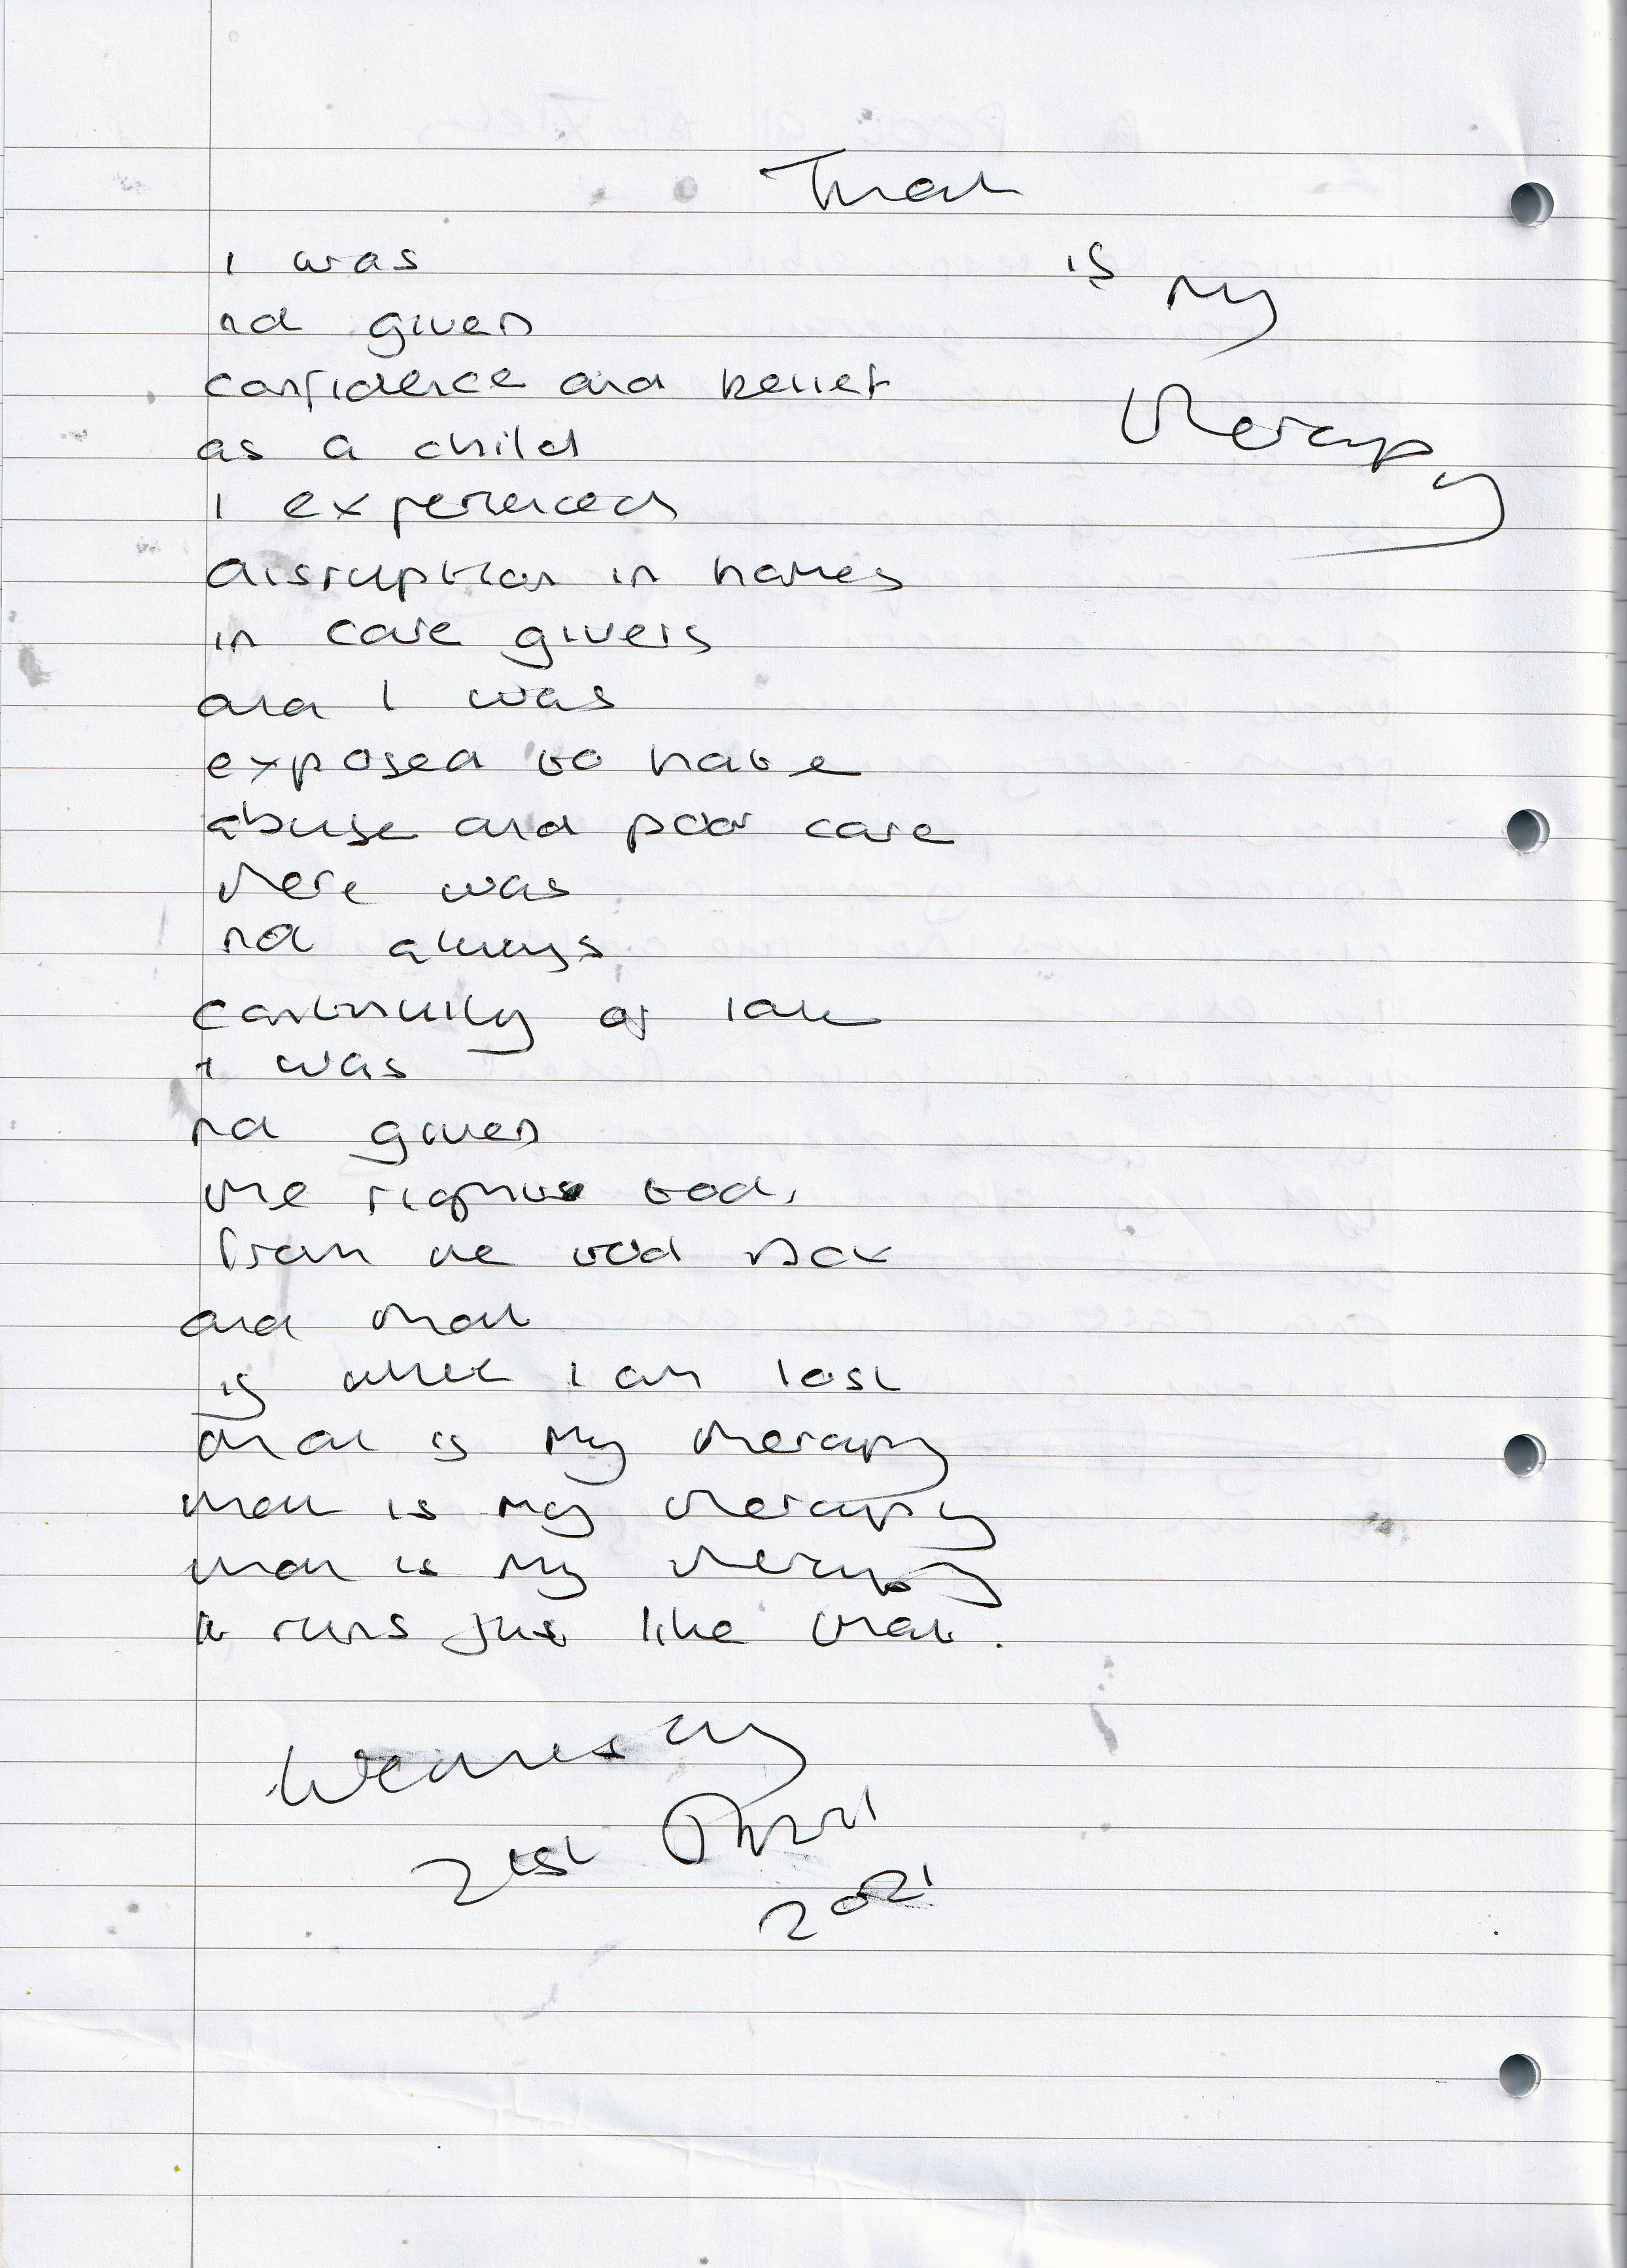 That
is my
therapy
I was
not given
confidence and belief
as a child
I experienced
disruption in homes
in care givers
and I was
exposed to hate
abuse and poor care
there was
not always
continuity of love
I was
not given
the right tools
from the tool box
and that
is where I am lost
that is my therapy
that is my therapy
that is my therapy
it runs just like that.
Wednesday
21st April
2021